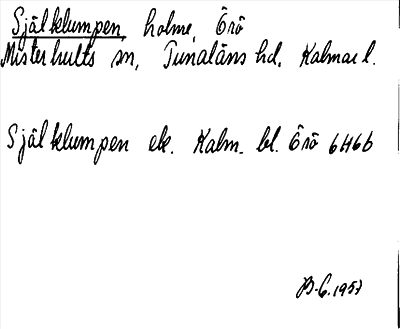 Själklumpen, holme, Örö
Misterhults sn, Tunaläns hd, Kalmar l.
Själklumpen ek. Kalm. bl. Örö 6H6b
B-C. 1957